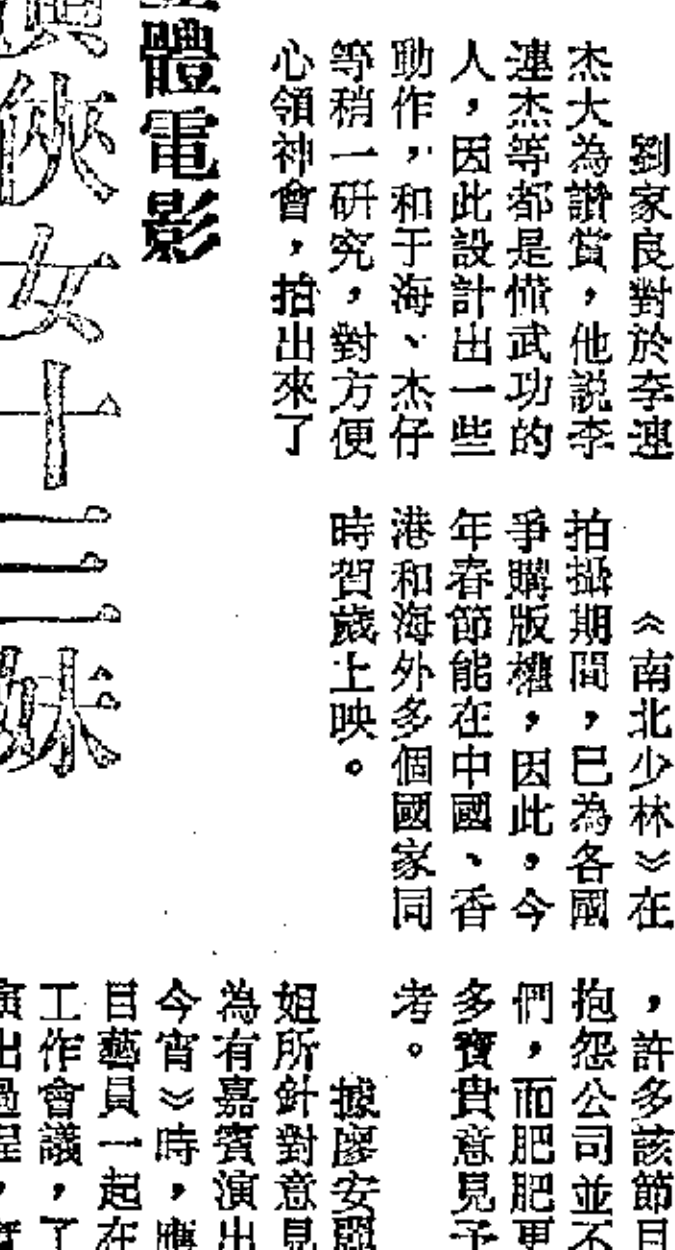 劉家良對於李連
杰大為讚賞，他説李
連杰等都是懂武功的
人，因此設計出一些
動作，和于海、杰仔
等稍一研究，對方便
心領神會，拍出來了
《南北少林》在
拍攝期間，已為各國
爭購版權，因此，今
年春節能在中國、香
港和海外多個國家同
時賀歲上映。
體電影
俠女十三妹
，許多該節目
抱怨公司並不
們，而肥肥更
多寶貴意見予
考。
據廖安麗
姐所針對意見
為有嘉賓演出
今宵》時，應
目藝員一起在
工作會議，了
演出過程，